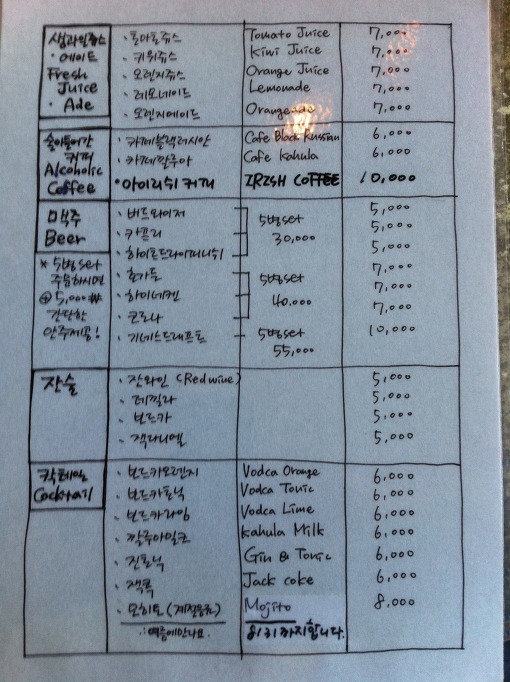 생과일쥬스
· 에이드
Fresh
Juice
· Ade
· 토마토쥬스 Tomato Juice 7,000
· 키위쥬스 Kiwi Juice 7,000
· 오렌지쥬스 Orange Juice 7,000
· 레모네이드 Lemonade 7,000
· 오렌지에이드 7,000
술이들어간
커피
Alcoholic
Coffee
· 카페블랙러시안 Cafe Black Russian 6,000
· 카페깔루아 Cafe Kahula 6,000
· 아이리쉬커피 IRISH COFFEE 10,000
맥주
Beer
* 5병set
주문하시면
@ 5,000₩
간단한
안주제공!
· 버드와이저 5,000
· 카프리 5,000
· 하이트드라이피니쉬 5,000
5병set
30,000
· 호가든 7,000
· 하이네켄 7,000
· 코로나 7,000
5병set
40,000
· 기네스드래프트 10,000
5병set
55,000
잔술
· 잔와인 (Red wine) 5,000
· 데낄라 5,000
· 보드카 5,000
· 잭다니엘 5,000
칵테일
Cocktail
· 보드카오렌지 Vodca Orange 6,000
· 보드카토닉 Vodca Tonic 6,000
· 보드카라임 Vodca Lime 6,000
· 깔루아밀크 Kahula Milk 6,000
· 진토닉 Gin & Tonic 6,000
· 잭콕 Jack coke 6,000
· 모히토 (계절음료) Mojito 8,000
∴ 여름에만나요. 8/31까지합니다.